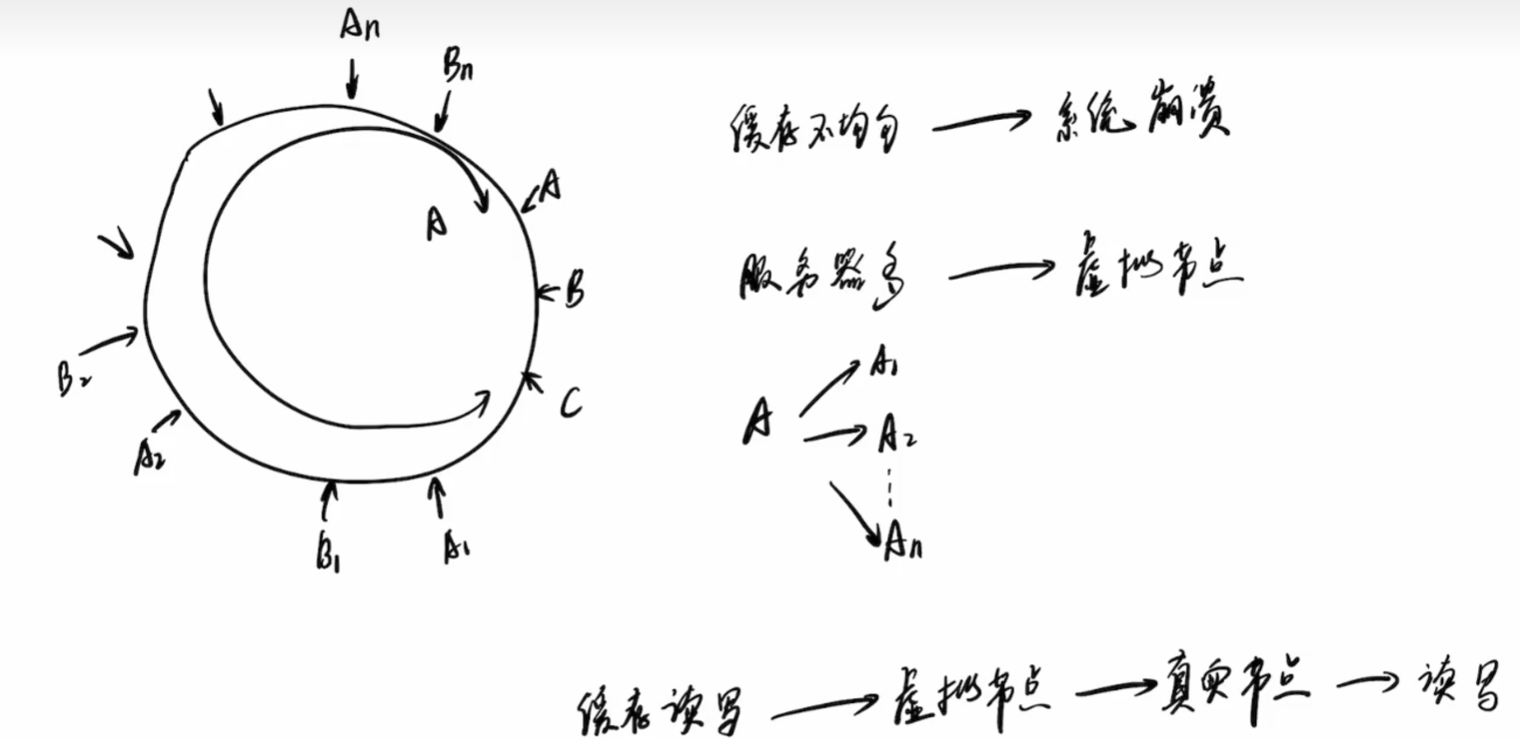 An
Bn
A
A
B
C
B2
A2
B1
A1
缓存不均匀 → 系统崩溃
服务器多 → 虚拟节点
A
A1
A2
An
缓存读写 → 虚拟节点 → 真实节点 → 读写